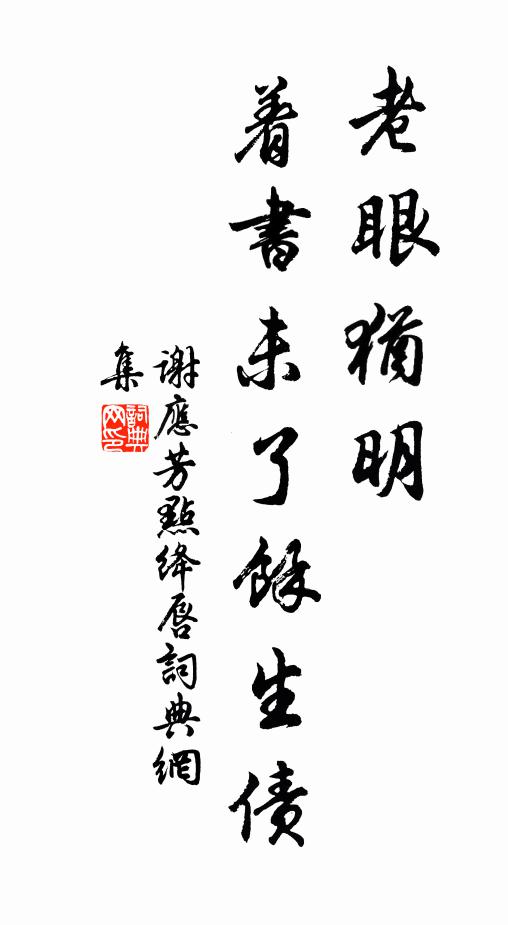 老眼猶明
着書未了餘生債
謝應芳點絳唇詞典網
集
詞典
网印